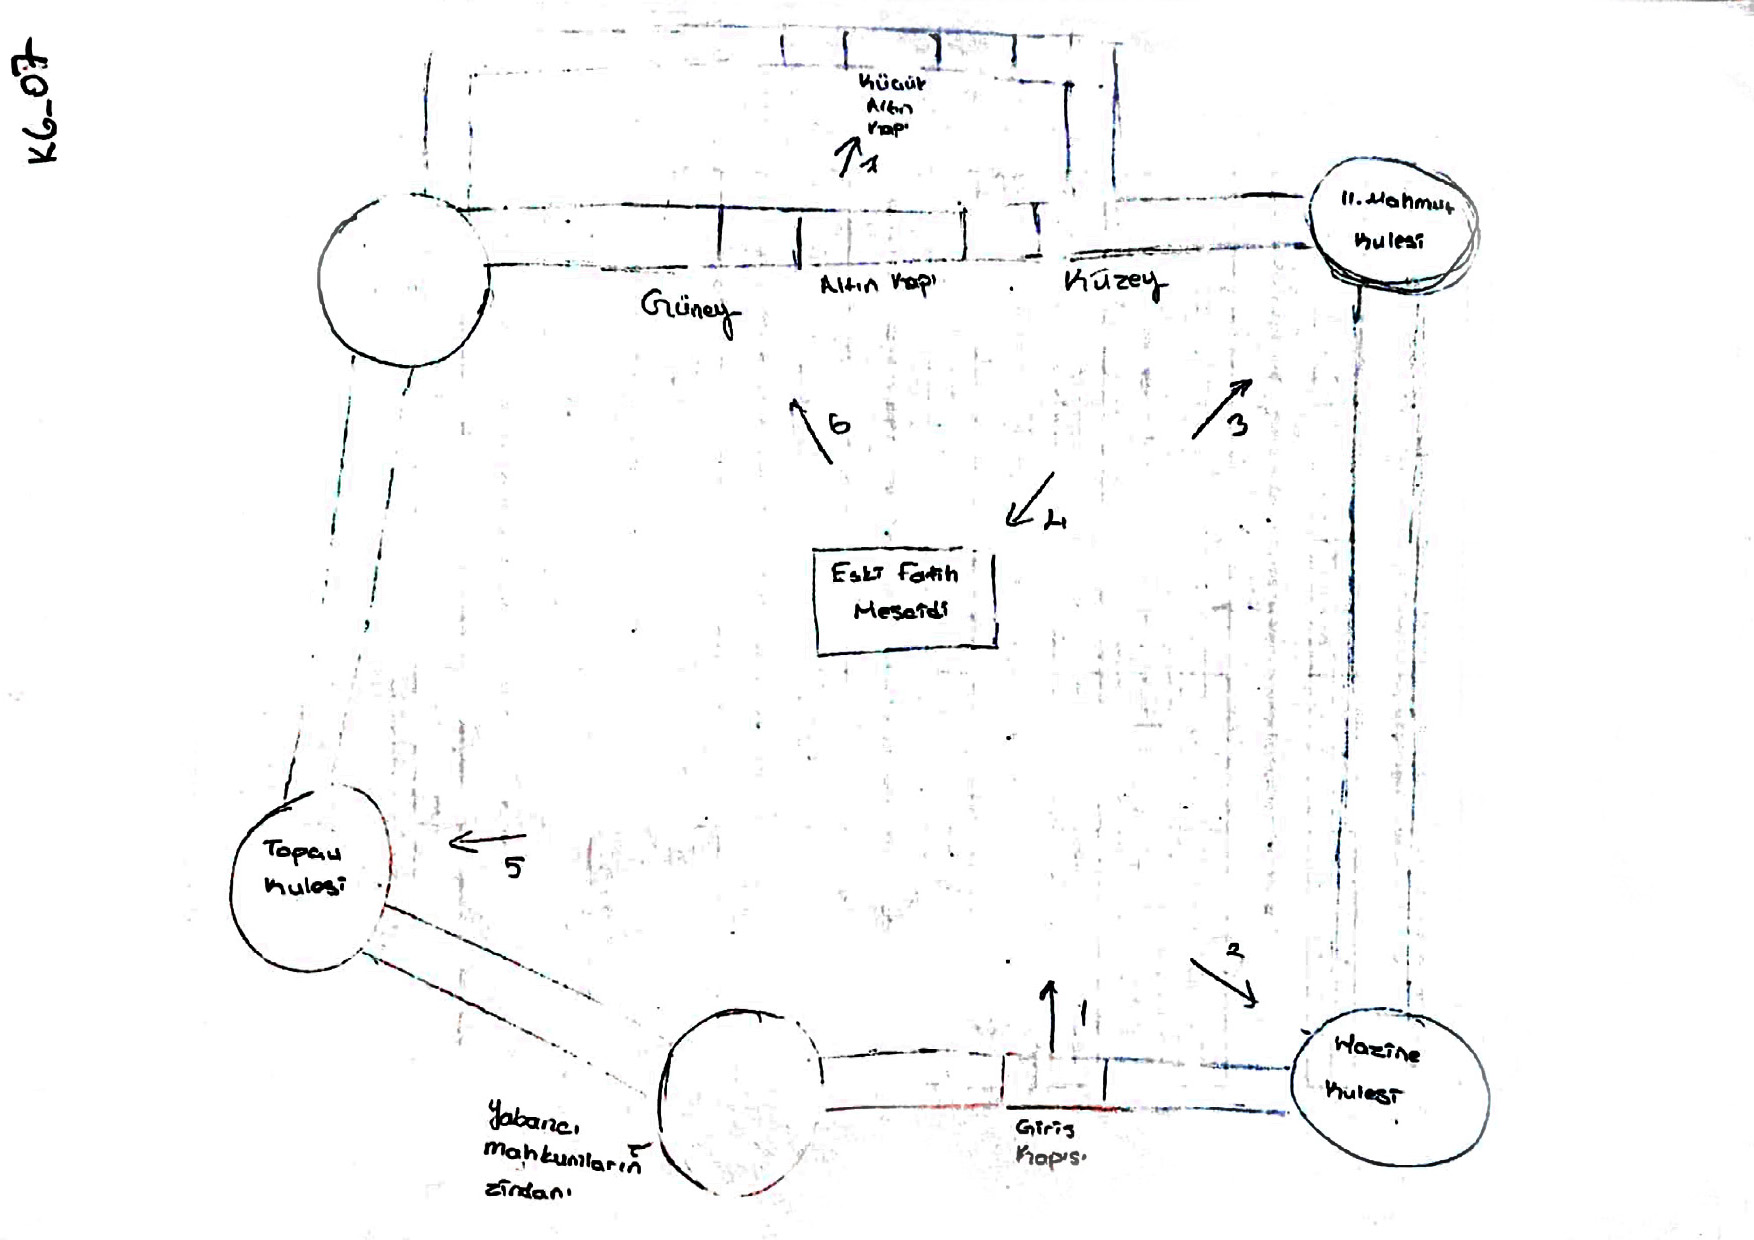 K6_07
Küçük
Altın
Kapı
7
II. Mahmut
Kulesi
Güney
Altın Kapı
Küzey
6
3
4
Eski Fatih
Mesciidi
Topçu
Kulesi
5
2
1
Hazine
Kulesi
Giriş
Kapısı
Yabancı
mahkumların
zindanı